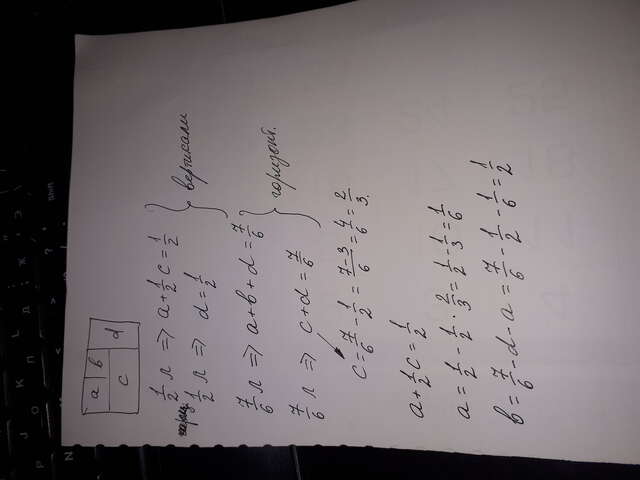 a b d
c
1/2 л ⇒ a+1/2 c = 1/2
1/2 л ⇒ d = 1/2
} вертикали
7/6 л ⇒ a+b+d = 7/6
7/6 л ⇒ c+d = 7/6
} горизонт.
c = 7/6 - 1/2 = (7-3)/6 = 4/6 = 2/3.
a + 1/2 c = 1/2
a = 1/2 - 1/2 · 2/3 = 1/2 - 1/3 = 1/6
b = 7/6 - d - a = 7/6 - 1/2 - 1/6 = 1/2